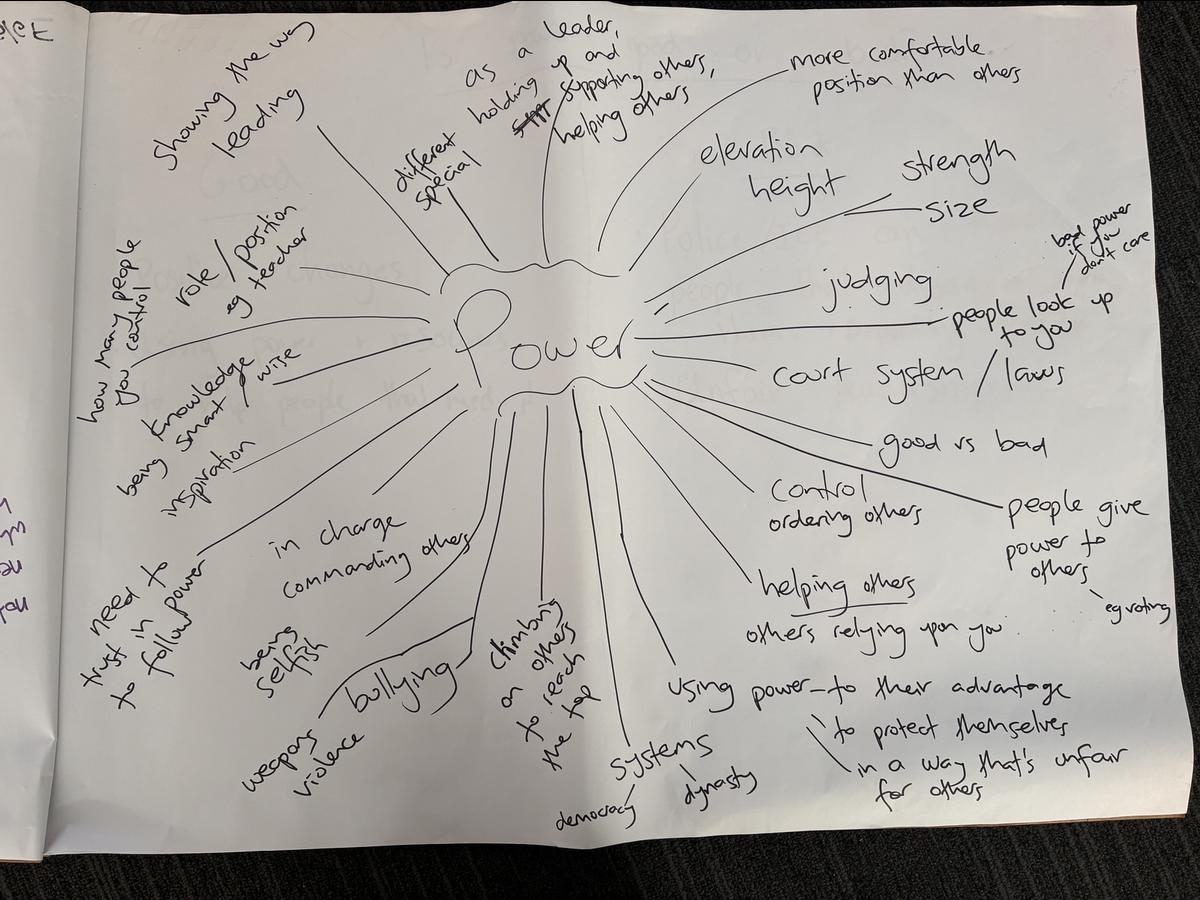 Power
showing the way
leading
different
special
as a leader,
holding up and
supporting others,
helping others
more comfortable
position than others
elevation
height
strength
size
judging
people look up
to you
bad power
if you
don't care
court system / laws
good vs bad
people give
power to
others
eg voting
control
ordering others
helping others
others relying upon you
using power - to their advantage
to protect themselves
in a way that's unfair
for others
systems
democracy
dynasty
climbing
on others
to reach
the top
bullying
weapons
violence
being
selfish
in charge
commanding others
trust need to
trust in
to follow power
inspiration
being knowledge
being smart / wise
how many people
you control
role / position
eg teacher